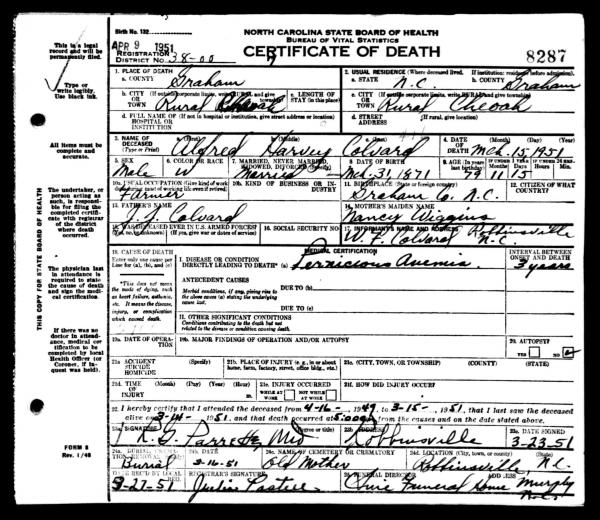 NORTH CAROLINA STATE BOARD OF HEALTH
BUREAU OF VITAL STATISTICS
CERTIFICATE OF DEATH
Birth No. 132
APR 9 1951
REGISTRATION DISTRICT NO. 38-00
8287
This is a legal record and will be permanently filed.
Type or write legibly. Use black ink.
All items must be complete and accurate.
The undertaker, or person acting as such, is responsible for filing the completed certificate with registrar of the district where death occurred.
The physician last in attendance is required to state the cause of death and sign the medical certification.
If there was no doctor in attendance, medical certification to be completed by local Health Officer (or Coroner, if inquest was held).
THIS COPY FOR STATE BOARD OF HEALTH
FORM 8
Rev. 1/48
1. PLACE OF DEATH
a. COUNTY Graham
2. USUAL RESIDENCE (Where deceased lived. If institution: residence before admission).
a. STATE N.C.
b. COUNTY Graham
b. CITY OR TOWN Rural Cheoah
c. LENGTH OF STAY (in this place)
c. CITY OR TOWN Rural Cheoah
d. FULL NAME OF HOSPITAL OR INSTITUTION (If not in hospital or institution, give street address or location)
d. STREET ADDRESS (If rural, give location)
3. NAME OF DECEASED (Type or Print)
a. (First) b. (Middle) c. (Last)
Alfred Harvey Colvard
4. DATE OF DEATH (Month) (Day) (Year)
Mch. 15, 1951
5. SEX Male
6. COLOR OR RACE W
7. MARRIED, NEVER MARRIED, WIDOWED, DIVORCED (Specify) Married
8. DATE OF BIRTH Mch. 31, 1871
9. AGE 79 11 15
10a. USUAL OCCUPATION (Give kind of work done during most of working life, even if retired) Farmer
10b. KIND OF BUSINESS OR INDUSTRY
11. BIRTHPLACE (State or foreign country) Graham Co. N.C.
12. CITIZEN OF WHAT COUNTRY?
13. FATHER'S NAME J. J. Colvard
14. MOTHER'S MAIDEN NAME Nancy Wiggins
15. WAS DECEASED EVER IN U.S. ARMED FORCES?
(Yes, no, or unknown) (If yes, give war or dates of service)
16. SOCIAL SECURITY NO.
17. INFORMANT'S NAME AND ADDRESS W. F. Colvard Robbinsville N.C.
18. CAUSE OF DEATH
Enter only one cause per line for (a), (b), and (c)
MEDICAL CERTIFICATION
INTERVAL BETWEEN ONSET AND DEATH
I. DISEASE OR CONDITION DIRECTLY LEADING TO DEATH* (a) Pernicious Anemia 3 years
*This does not mean the mode of dying, such as heart failure, asthenia, etc. It means the disease, injury, or complication which caused death.
ANTECEDENT CAUSES
Morbid conditions, if any, giving rise to the above cause (a) stating the underlying cause last.
DUE TO (b)
DUE TO (c)
II. OTHER SIGNIFICANT CONDITIONS
Conditions contributing to the death but not related to the disease or condition causing death.
19a. DATE OF OPERATION
19b. MAJOR FINDINGS OF OPERATION AND/OR AUTOPSY
20. AUTOPSY?
YES NO
21a. ACCIDENT SUICIDE HOMICIDE (Specify)
21b. PLACE OF INJURY (e.g., in or about home, farm, factory, street, office bldg., etc.)
21c. (CITY, TOWN, OR TOWNSHIP) (COUNTY) (STATE)
21d. TIME OF INJURY (Month) (Day) (Year) (Hour)
21e. INJURY OCCURRED
WHILE AT WORK NOT WHILE AT WORK
21f. HOW DID INJURY OCCUR?
22. I hereby certify that I attended the deceased from 4-16-, 1949, to 3-15-, 1951, that I last saw the deceased
alive on 3-14-, 1951, and that death occurred at 5:00 m., from the causes and on the date stated above.
23a. SIGNATURE (Degree or title)
23b. ADDRESS Robbinsville
23c. DATE SIGNED 3-23-51
24a. BURIAL, CREMATION, REMOVAL (Specify) Burial
24b. DATE 3-16-51
24c. NAME OF CEMETERY OR CREMATORY Old Mother
24d. LOCATION (City, town, or county) (State) Robbinsville, N.C.
DATE REC'D BY LOCAL REG. 3-27-51
REGISTRAR'S SIGNATURE
25. FUNERAL DIRECTOR ADDRESS
Funeral Home Murphy N.C.